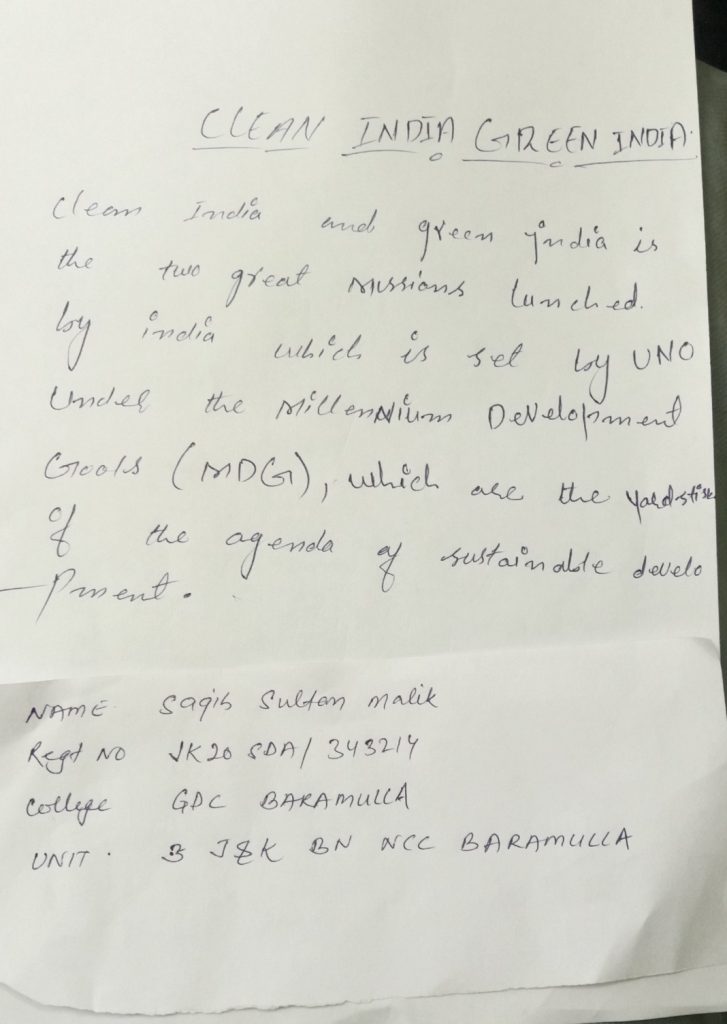 CLEAN INDIA GREEN INDIA
Clean India and green india is
the two great missions lunched.
by india which is set by UNO
Under the Millennium Development
Goals (MDG), which are the yardstick
of the agenda of sustainable develo
-pment.
NAME Saqib Sultan Malik
Regt NO JK20 SDA/ 343214
College GDC BARAMULLA
UNIT. 3 J&K BN NCC BARAMULLA